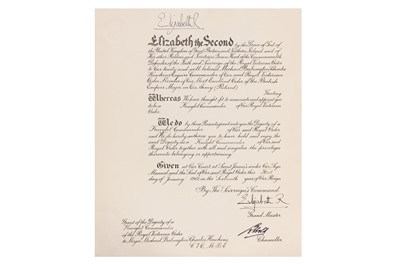 Elizabeth R
Elizabeth the Second by the Grace of God of
the United Kingdom of Great Britain and Northern Ireland and of
Her other Realms and Territories Queen Head of the Commonwealth
Defender of the Faith and Sovereign of the Royal Victorian Order
to Our trusty and well beloved Michael Babington Charles
Hawkins Esquire Commander of Our Royal Victorian
Order Member of Our Most Excellent Order of the British
Empire Major in Our Army (Retired)
Greeting
Whereas We have thought fit to nominate and appoint you
to be a Knight Commander of Our Royal Victorian
Order
We do by these Presents grant unto you the Dignity of a
Knight Commander of Our said Royal Order
and We do hereby authorise you to have hold and enjoy the
said Dignity of a Knight Commander of Our said
Royal Order together with all and singular the privileges
thereunto belonging or appertaining
Given at Our Court at Saint James's under Our Sign
Manual and the Seal of Our said Royal Order this First
day of January in the Sixteenth year of Our Reign
By The Sovereign's Command
Elizabeth R
Grand Master
Grant of the Dignity of a
Knight Commander
of the Royal Victorian Order
to Major Michael Babington Charles Hawkins
C.V.O. M.B.E.
Chancellor